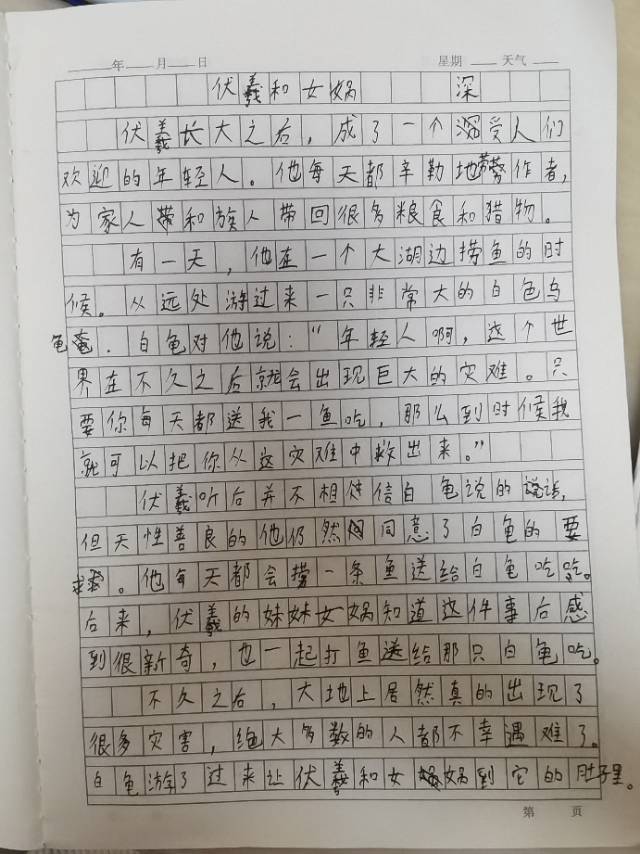 年 月 日 星期 天气
伏羲和女娲 深
伏羲长大之后，成了一个深受人们
欢迎的年轻人。他每天都辛勤地劳作者，
为家人带和族人带回很多粮食和猎物。
有一天，他在一个大湖边捞鱼的时
候。从远处游过来一只非常大的白色乌
龟。白龟对他说：“年轻人啊，这个世
界在不久之后就会出现巨大的灾难。只
要你每天都送我一鱼吃，那么到时候我
就可以把你从这灾难中救出来。”
伏羲听后并不相信白龟说的说话，
但天性善良的他仍然同意了白龟的要
求。他每天都会捞一条鱼送给白龟吃吃。
后来，伏羲的妹妹女娲知道这件事后感
到很新奇，也一起打鱼送给那只白龟吃。
不久之后，大地上居然真的出现了
很多灾害，绝大多数的人都不幸遇难了。
白龟游了过来让伏羲和女娲到它的肚子里。
第 页